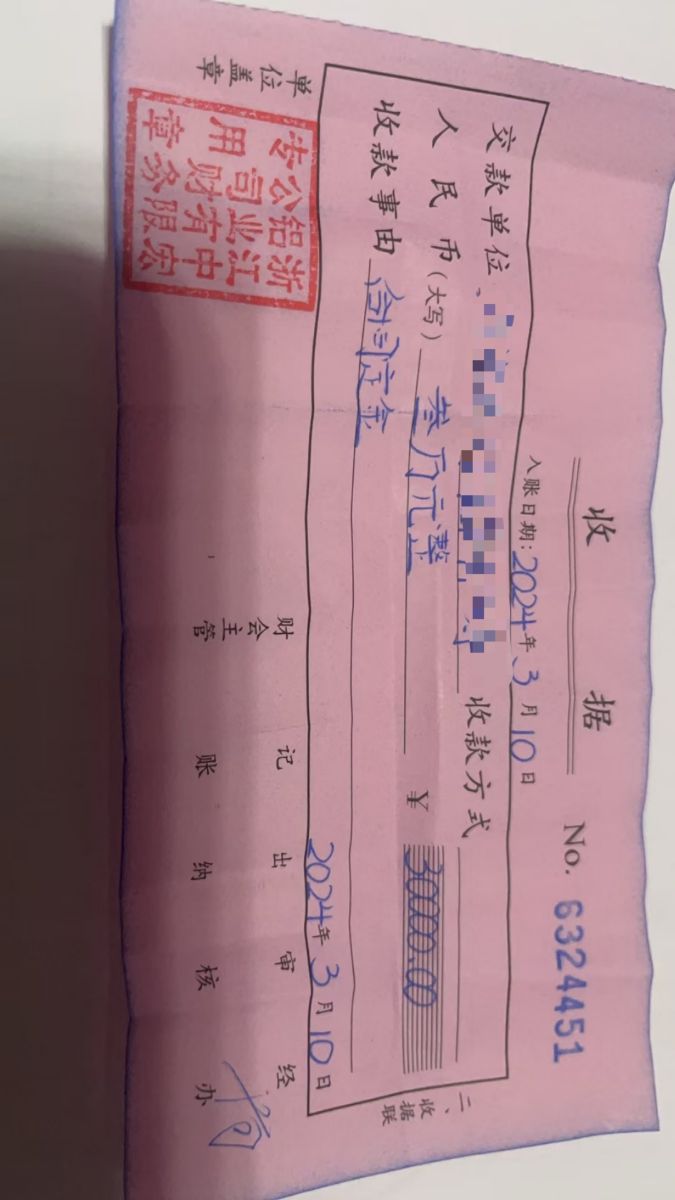 收 据
No. 6324451
入账日期：2024年 3 月 10 日
交款单位 收款方式
人民币（大写） 叁万元整 ¥ 30000.00
收款事由 合同定金
2024年 3 月 10 日
二、收据联
单位盖章 财会主管 记账 出纳 审核 经办
浙江中宏
铝业有限
公司财务
专用章